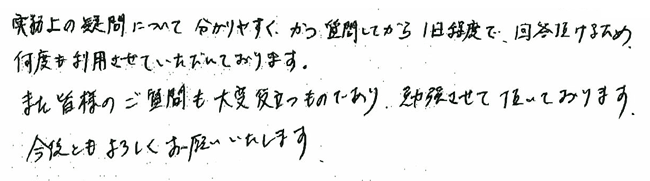 実務上の疑問について分かりやすく、かつ質問してから1日程度で、回答頂けるため、
何度も利用させていただいております。
また皆様のご質問も大変役立つものであり、勉強させて頂いております。
今後ともよろしくお願いいたします。